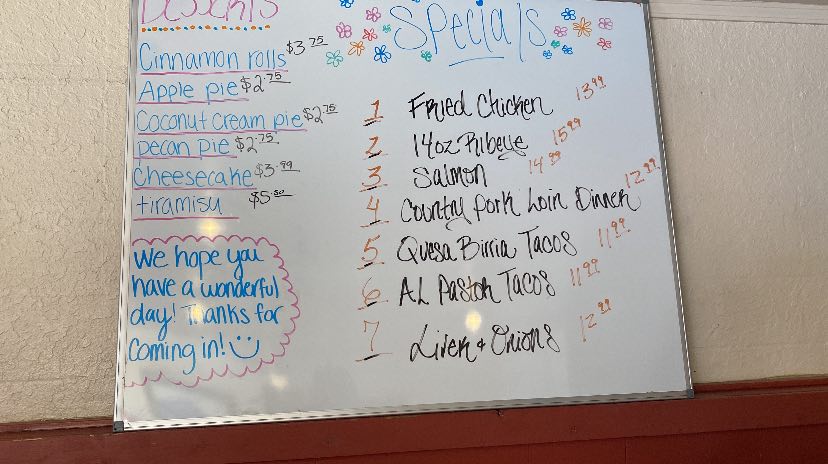 Desserts
Cinnamon rolls $3.75
Apple pie $2.75
Coconut cream pie $2.75
pecan pie $2.75
Cheesecake $3.99
tiramisu $5.50
We hope you
have a wonderful
day! Thanks for
Coming in!
Specials
1 Fried Chicken 13.99
2 14oz Ribeye 15.99
3 Salmon 14.99
4 Country Pork Loin Dinner 12.99
5 Quesa Birria Tacos 11.99
6 AL Pastor Tacos 11.99
7 Liver + Onions 12.99